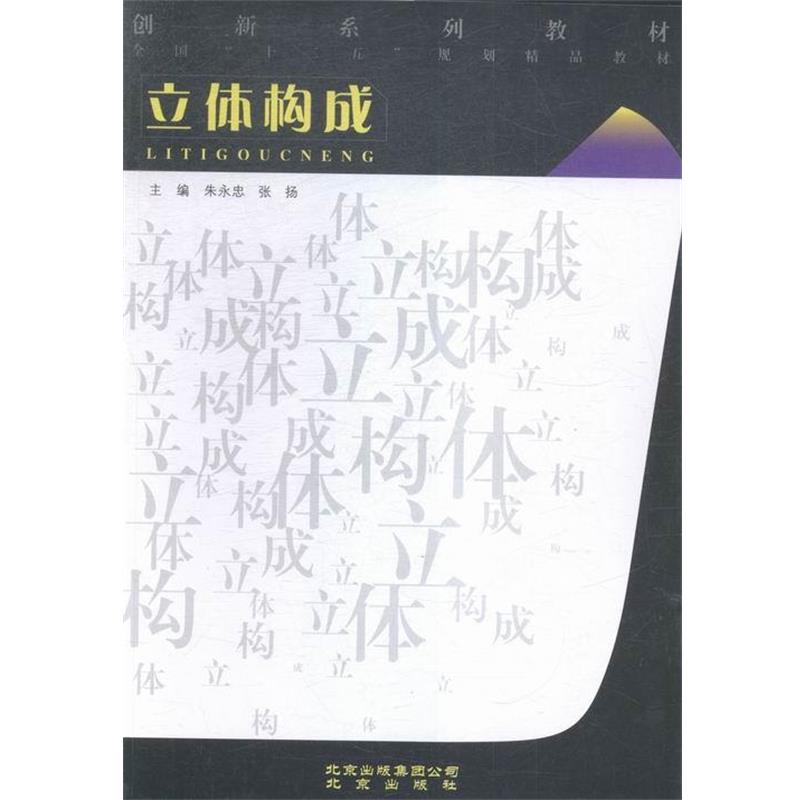 创新系列教材
全国“十 五”规划精品教材
立体构成
LITIGOUCNENG
主编 朱永忠 张扬
体
立 体 体 体
立 立 构 构 成
体 立
构 成 构 成 立
立 立 体 构 成
立 构 体 立 体 立
立 成 成 构 体 立
立 体 构 体 立 构
体 成 立 立 成
构 立 立 构
构 体 立 体 构 成
构 立
体 立 成 立 立
构 体
北京出版集团公司
北京出版社